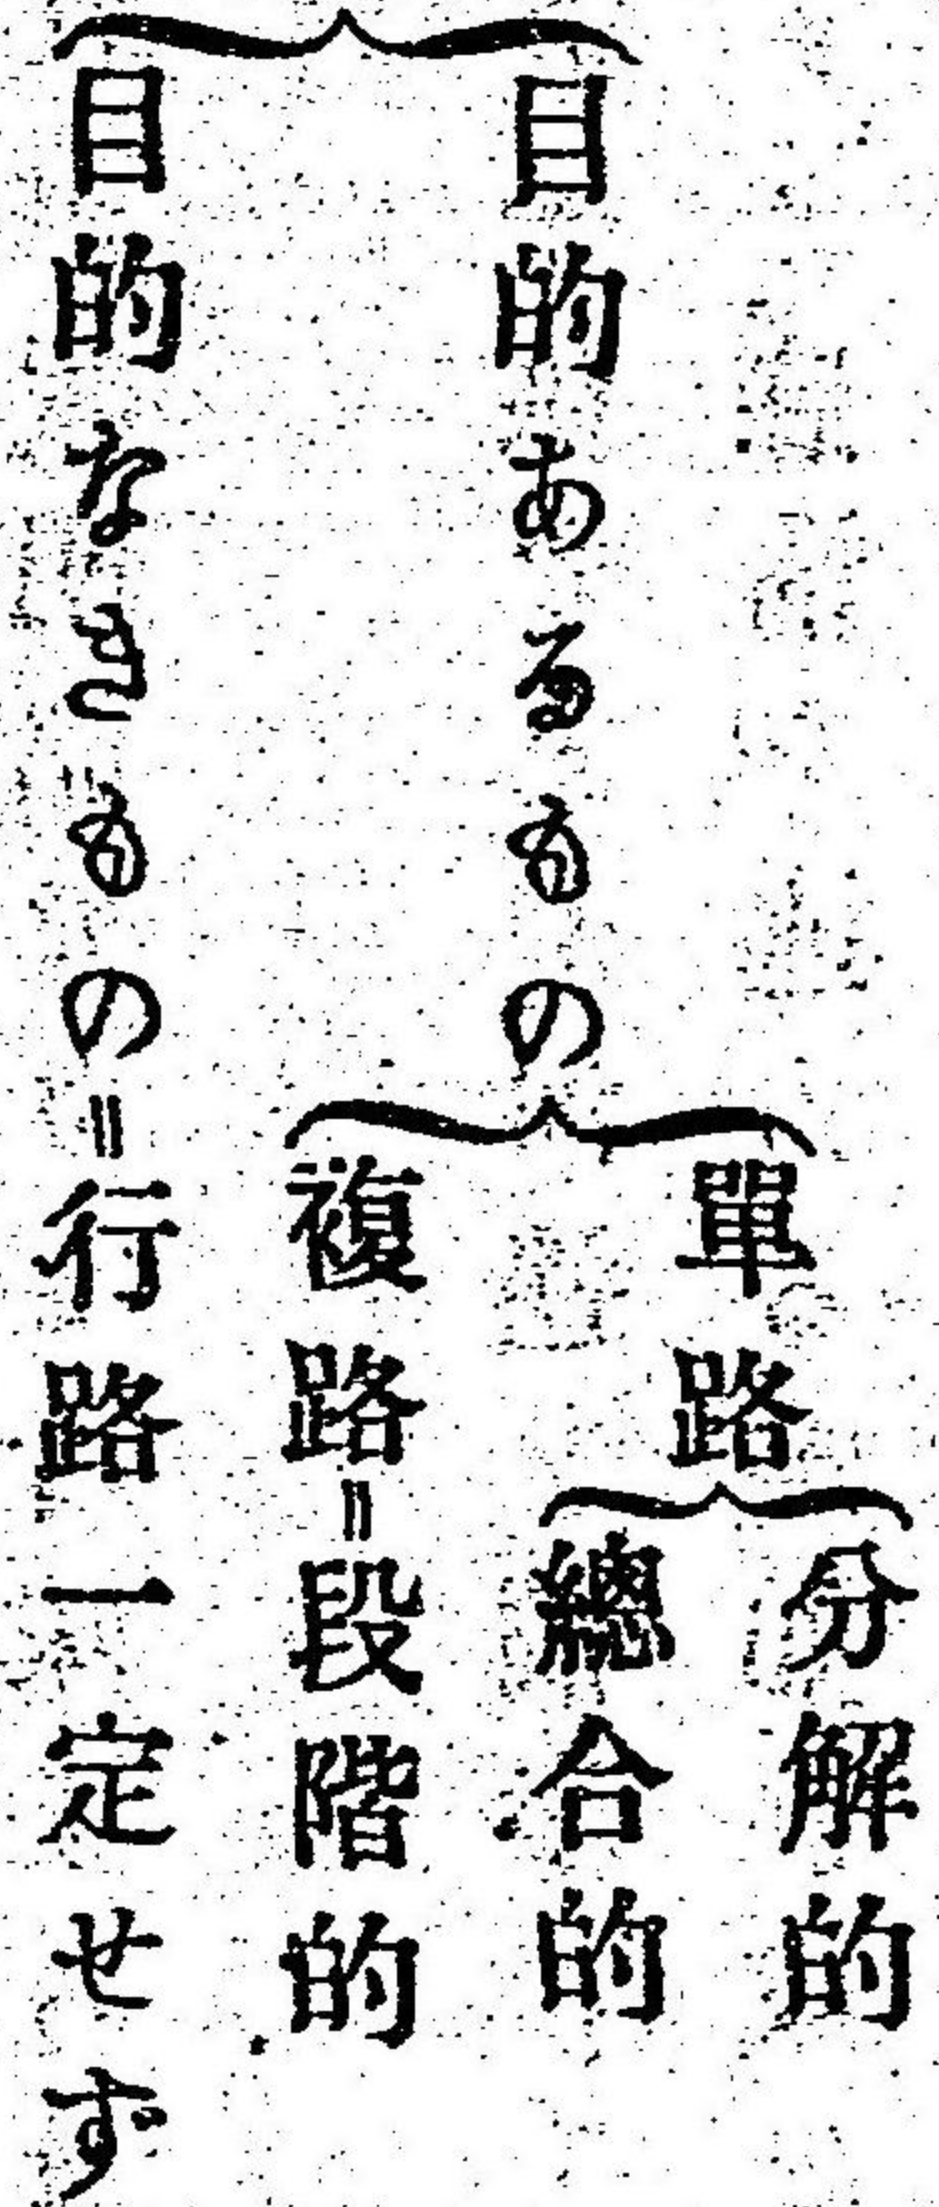 目的あるもの
單路
分解的
總合的
複路=段階的
目的なきもの=行路一定せず